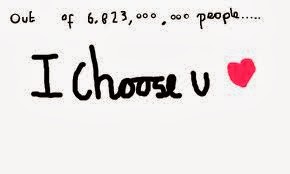 Out of 6,823,000,000 people.....
I Choose U